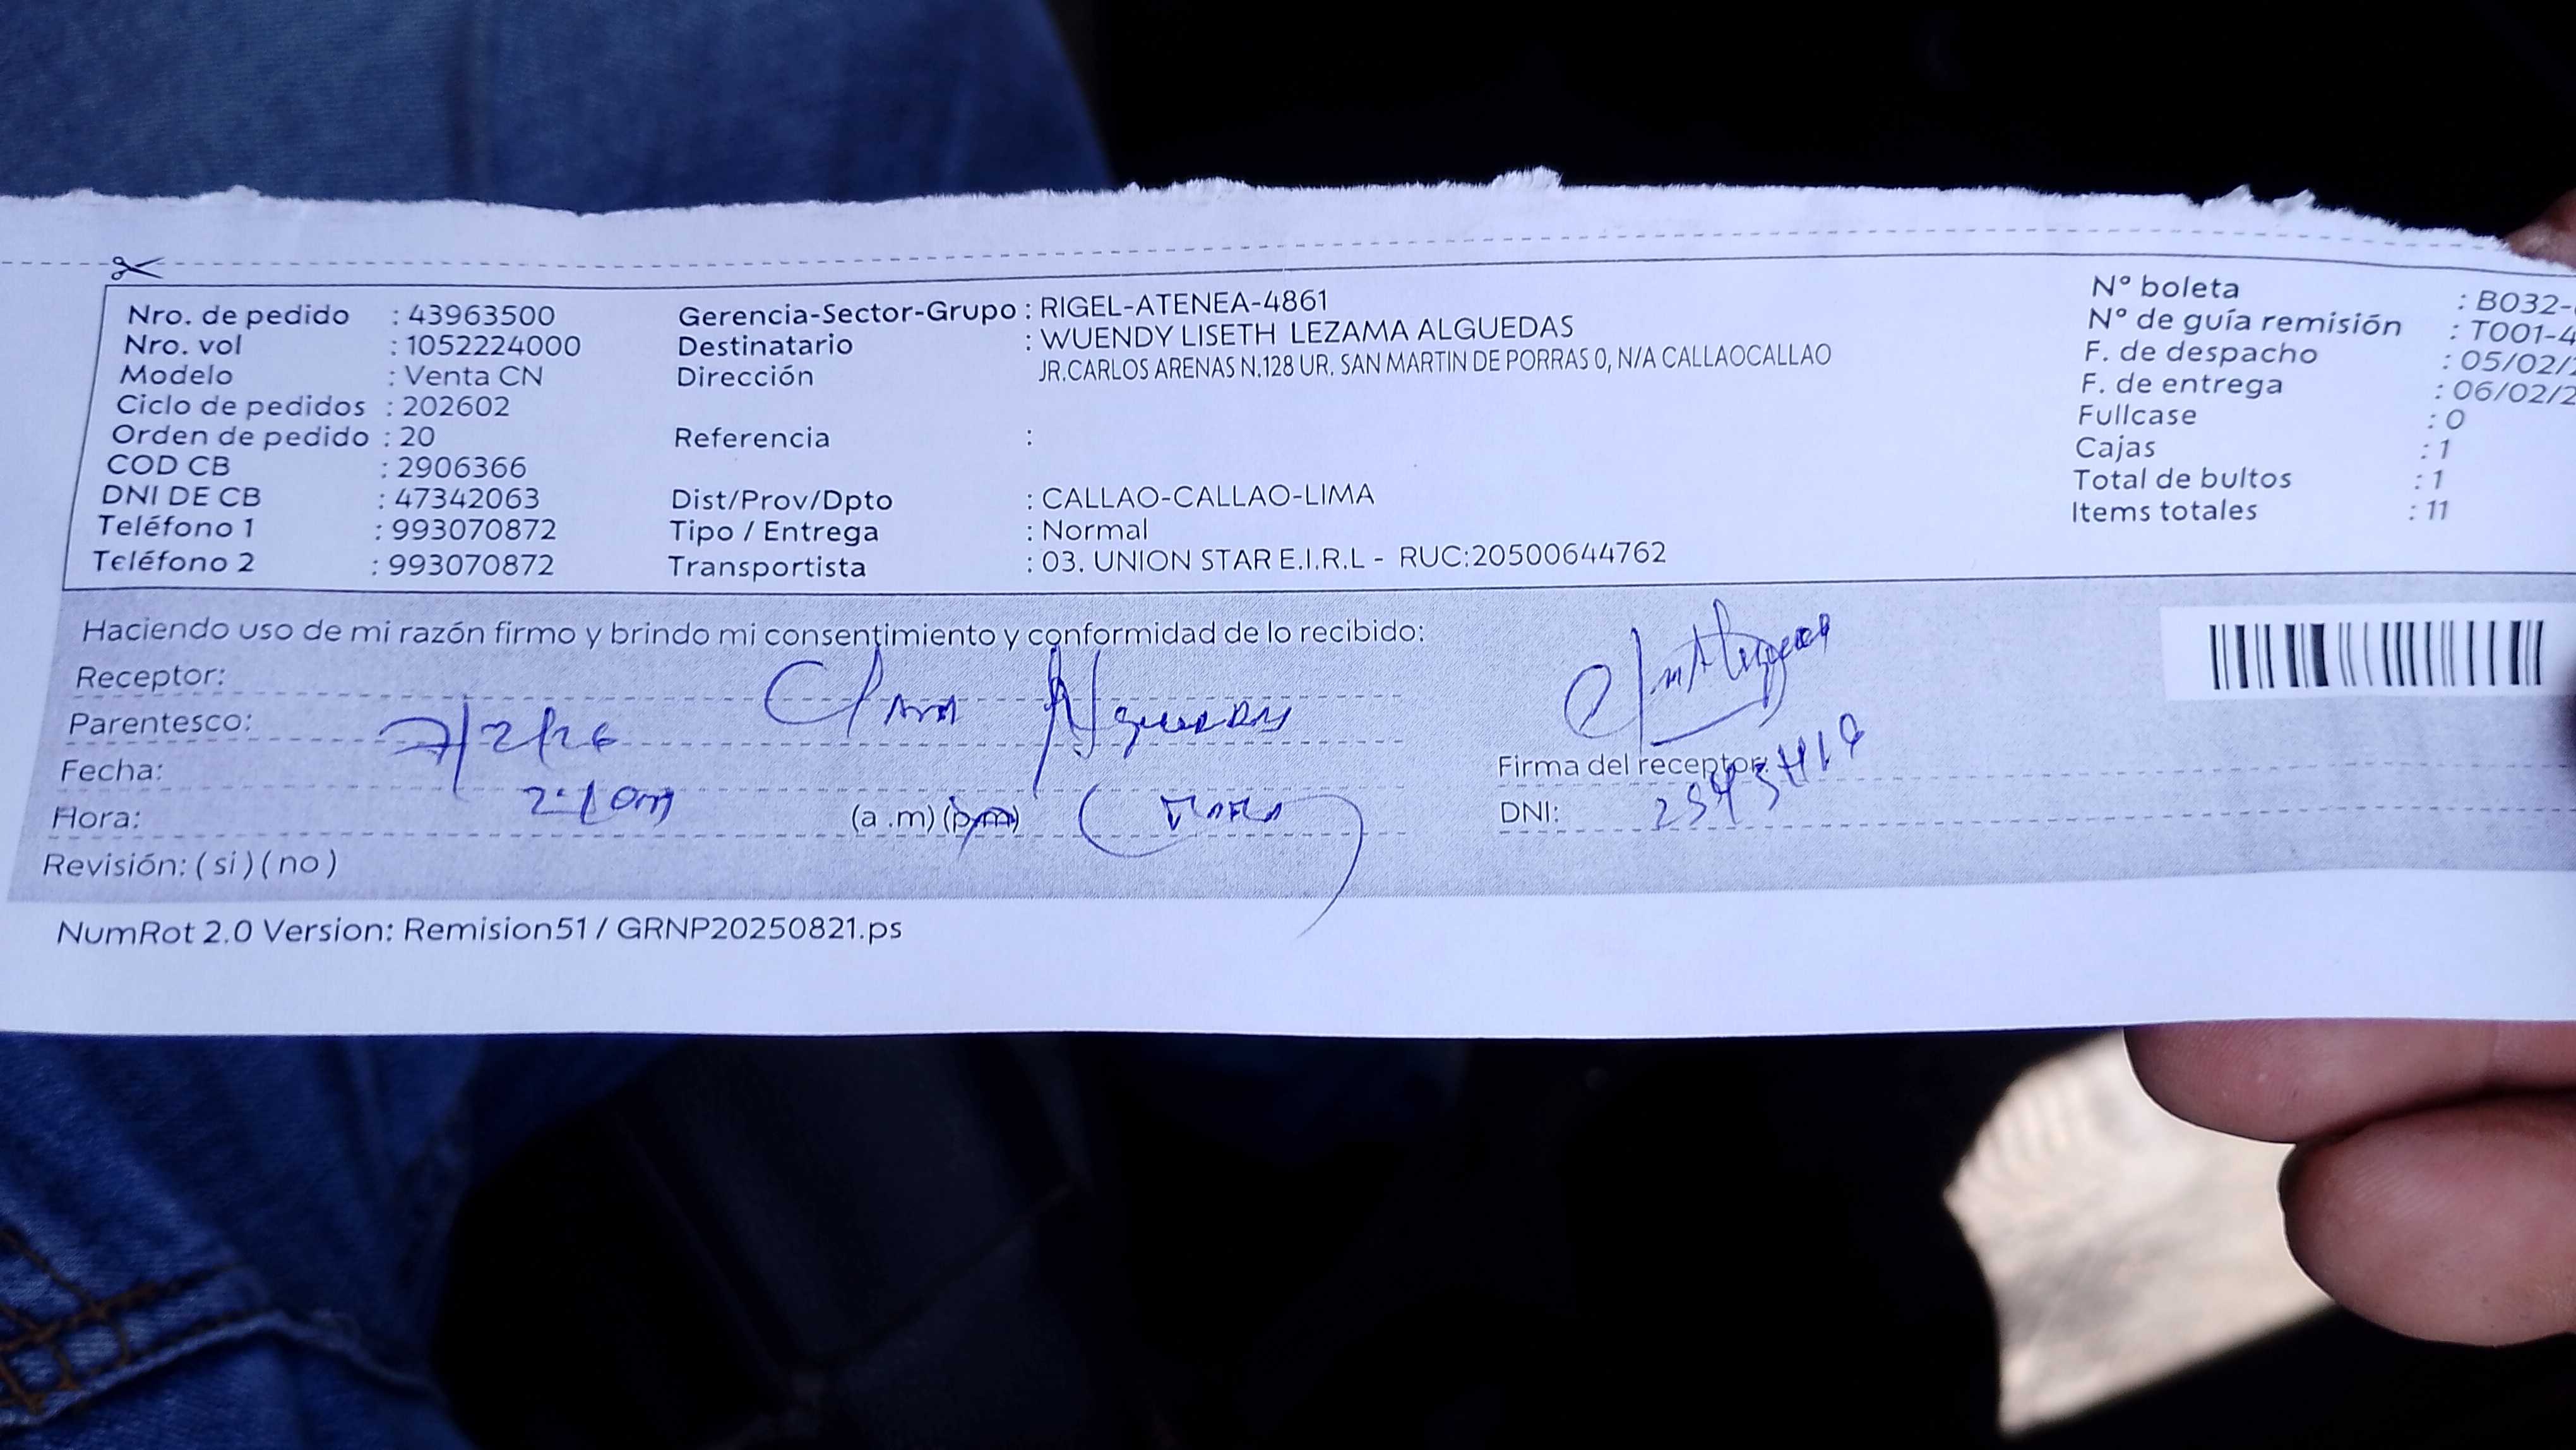 Nro. de pedido : 43963500
Nro. vol : 1052224000
Modelo : Venta CN
Ciclo de pedidos : 202602
Orden de pedido : 20
COD CB : 2906366
DNI DE CB : 47342063
Teléfono 1 : 993070872
Teléfono 2 : 993070872
Gerencia-Sector-Grupo : RIGEL-ATENEA-4861
Destinatario : WUENDY LISETH LEZAMA ALGUEDAS
Dirección JR.CARLOS ARENAS N.128 UR. SAN MARTIN DE PORRAS 0, N/A CALLAOCALLAO
Referencia :
Dist/Prov/Dpto : CALLAO-CALLAO-LIMA
Tipo / Entrega : Normal
Transportista : 03. UNION STAR E.I.R.L - RUC:20500644762
N° boleta : B032-
N° de guía remisión : T001-4
F. de despacho : 05/02/2
F. de entrega : 06/02/2
Fullcase : 0
Cajas : 1
Total de bultos : 1
Items totales : 11
Haciendo uso de mi razón firmo y brindo mi consentimiento y conformidad de lo recibido:
Receptor: Clara Alguedas
Parentesco:
7/2/26
Fecha:
Hora: (a .m) (p.m)
Revisión: ( si ) ( no )
Firma del receptor:
DNI:
NumRot 2.0 Version: Remision51 / GRNP20250821.ps